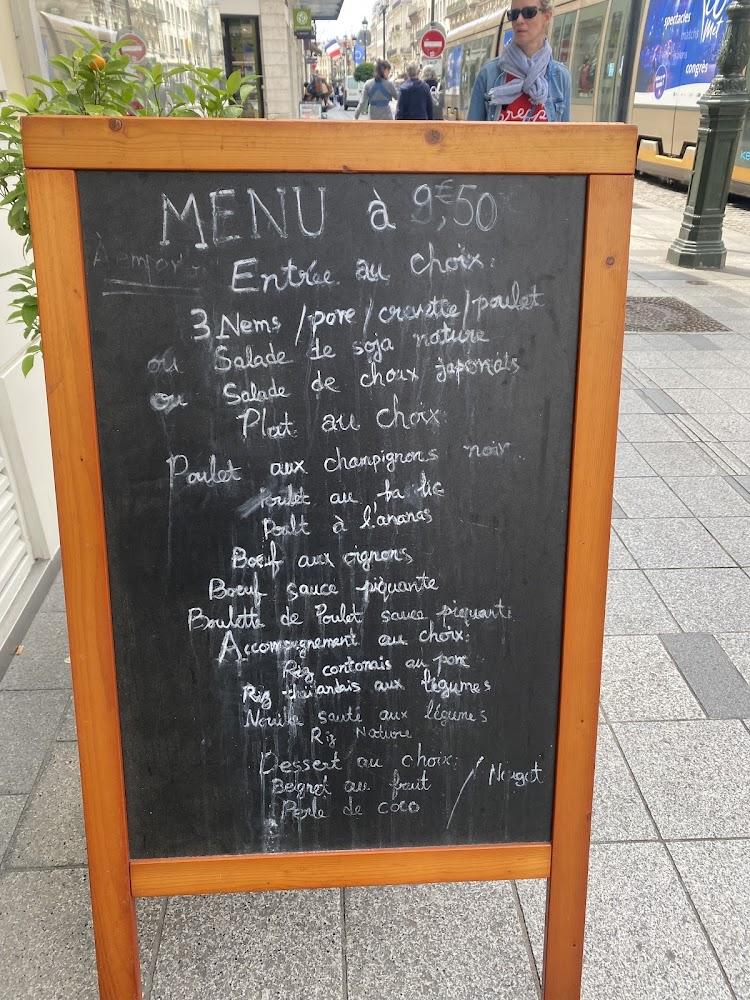 MENU à 9,€50
À empor
Entrée au choix:
3 Nems /porc/crevette/poulet
ou Salade de soja nature
ou Salade de choux japonais
Plat au choix
Poulet aux champignons noir
Poulet au basilic
Poult à l'ananas
Bœuf aux oignons
Bœuf sauce piquante
Boulette de Poulet sauce piquante
Accompagnement au choix:
Riz contonais au porc
Riz thaïlandais aux légumes
Nouille sauté aux légumes
Riz Nature
Dessert au choix:
Beignet au fruit / Nougat
Perle de coco
spectacles
matchs
congrès